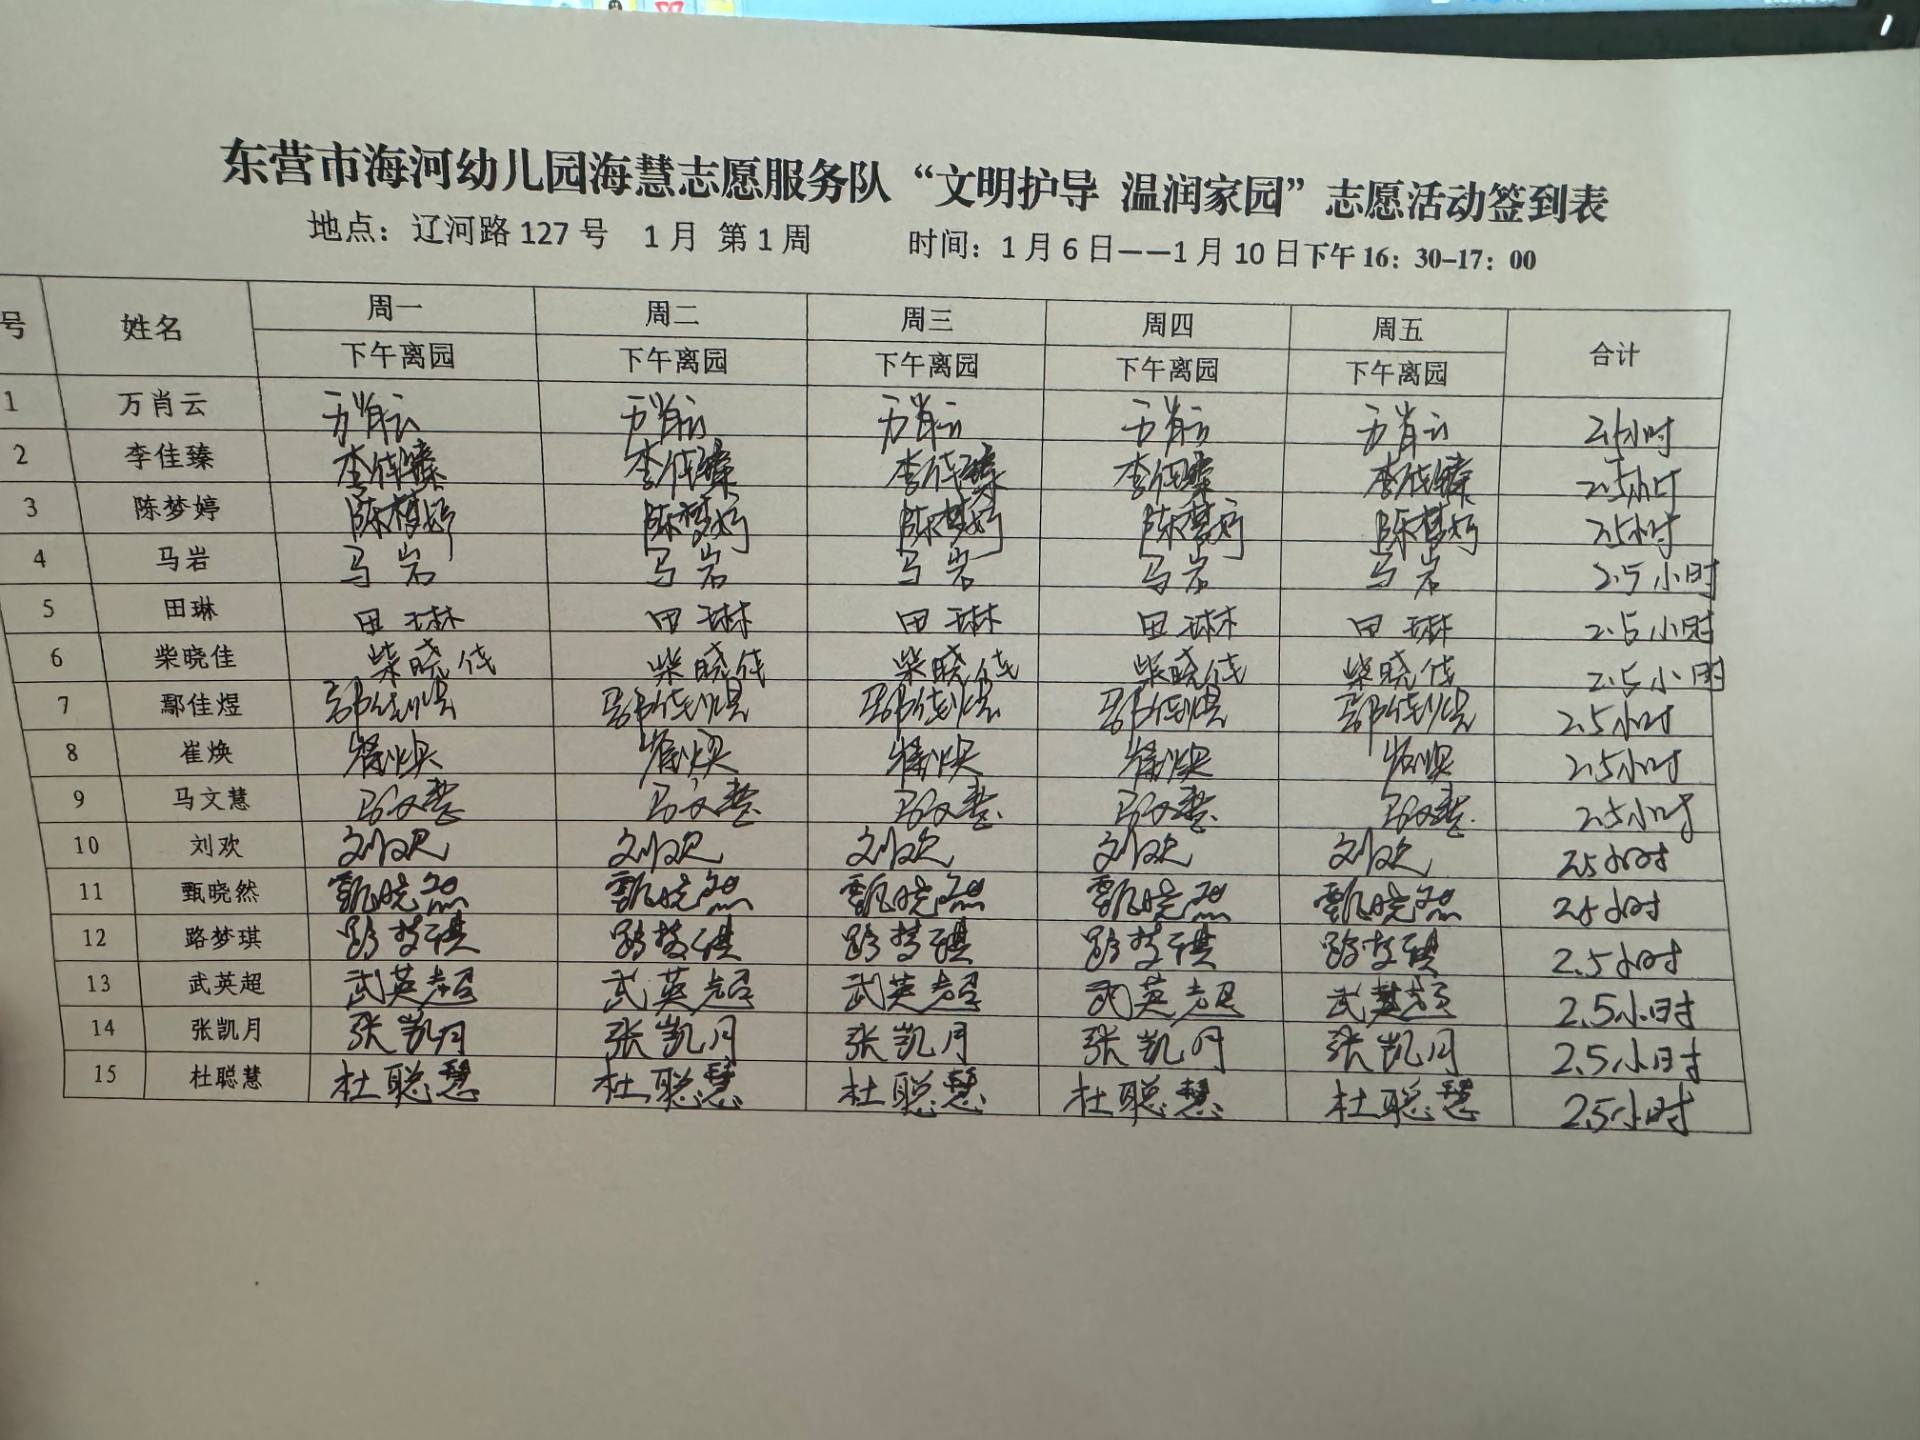 东营市海河幼儿园海慧志愿服务队“文明护导 温润家园”志愿活动签到表
地点：辽河路 127 号 1 月 第 1 周 时间：1 月 6 日——1 月 10 日下午 16：30-17：00
号 姓名 周一 周二 周三 周四 周五 合计
下午离园 下午离园 下午离园 下午离园 下午离园
1 万肖云 万肖云 万肖云 万肖云 万肖云 万肖云 2.5小时
2 李佳臻 李佳臻 李佳臻 李佳臻 李佳臻 李佳臻 2.5小时
3 陈梦婷 陈梦婷 陈梦婷 陈梦婷 陈梦婷 陈梦婷 2.5小时
4 马岩 马岩 马岩 马岩 马岩 马岩 2.5小时
5 田琳 田琳 田琳 田琳 田琳 田琳 2.5小时
6 柴晓佳 柴晓佳 柴晓佳 柴晓佳 柴晓佳 柴晓佳 2.5小时
7 鄢佳煜 鄢佳煜 鄢佳煜 鄢佳煜 鄢佳煜 鄢佳煜 2.5小时
8 崔焕 崔焕 崔焕 崔焕 崔焕 崔焕 2.5小时
9 马文慧 马文慧 马文慧 马文慧 马文慧 马文慧 2.5小时
10 刘欢 刘欢 刘欢 刘欢 刘欢 刘欢 2.5小时
11 甄晓然 甄晓然 甄晓然 甄晓然 甄晓然 甄晓然 2.5小时
12 路梦琪 路梦琪 路梦琪 路梦琪 路梦琪 路梦琪 2.5小时
13 武英超 武英超 武英超 武英超 武英超 武英超 2.5小时
14 张凯月 张凯月 张凯月 张凯月 张凯月 张凯月 2.5小时
15 杜聪慧 杜聪慧 杜聪慧 杜聪慧 杜聪慧 杜聪慧 2.5小时